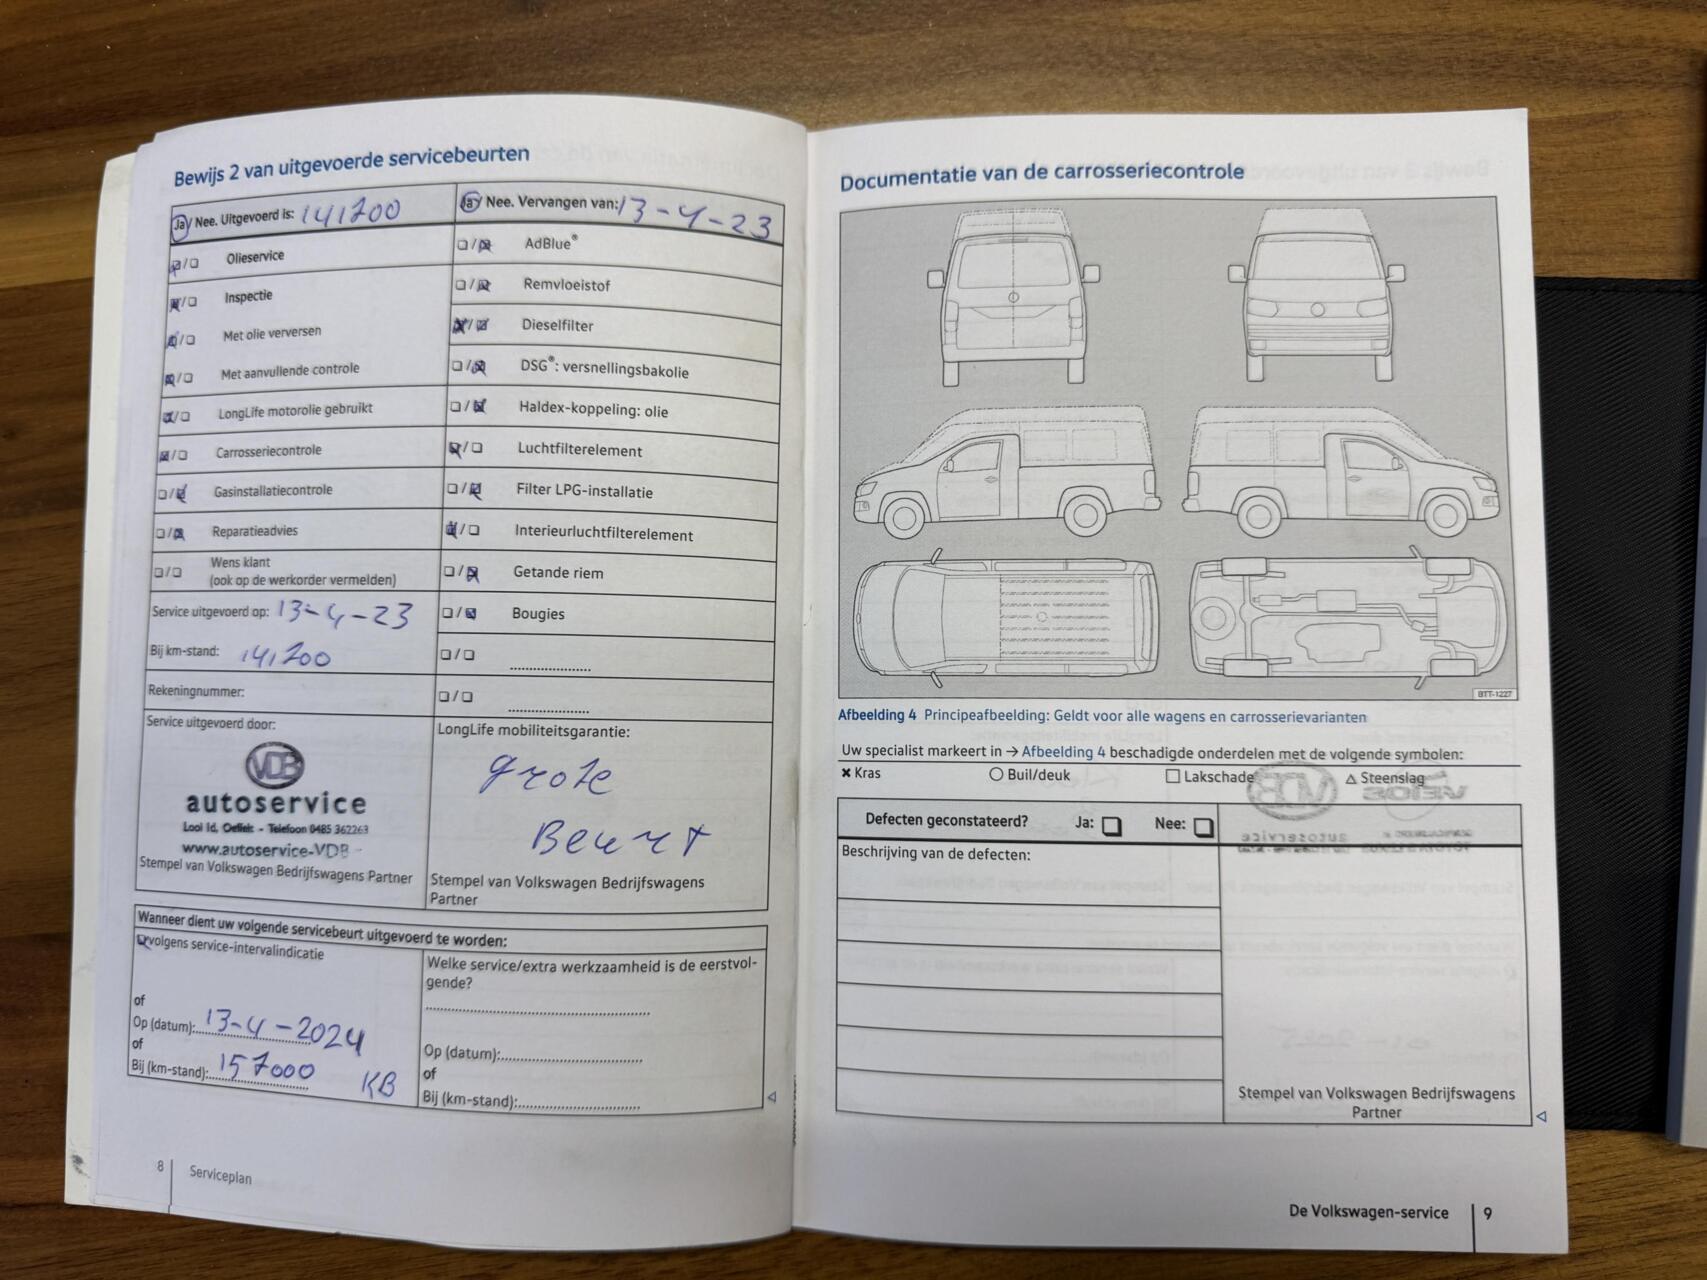 Bewijs 2 van uitgevoerde servicebeurten
Ja/ Nee. Uitgevoerd is: 141200
Ja/ Nee. Vervangen van: 13-4-23
Olieservice
Inspectie
Met olie verversen
Met aanvullende controle
LongLife motorolie gebruikt
Carrosseriecontrole
Gasinstallatiecontrole
Reparatieadvies
Wens klant
(ook op de werkorder vermelden)
Service uitgevoerd op: 13-4-23
Bij km-stand: 141200
Rekeningnummer:
AdBlue®
Remvloeistof
Dieselfilter
DSG®: versnellingsbakolie
Haldex-koppeling: olie
Luchtfilterelement
Filter LPG-installatie
Interieurluchtfilterelement
Getande riem
Bougies
Service uitgevoerd door:
VDB
autoservice
Looi 1d, Oeffelt - Telefoon 0485 362263
www.autoservice-VDB
Stempel van Volkswagen Bedrijfswagens Partner
LongLife mobiliteitsgarantie:
grote
Beurt
Stempel van Volkswagen Bedrijfswagens
Partner
Wanneer dient uw volgende servicebeurt uitgevoerd te worden:
volgens service-intervalindicatie
of
Op (datum): 13-4-2024
of
Bij (km-stand): 157000 KB
Welke service/extra werkzaamheid is de eerstvol-
gende?
Op (datum):
of
Bij (km-stand):
8 Serviceplan
Documentatie van de carrosseriecontrole
BTT-1227
Afbeelding 4 Principeafbeelding: Geldt voor alle wagens en carrosserievarianten
Uw specialist markeert in → Afbeelding 4 beschadigde onderdelen met de volgende symbolen:
× Kras ○ Buil/deuk □ Lakschade △ Steenslag
Defecten geconstateerd? Ja: □ Nee: □
Beschrijving van de defecten:
Stempel van Volkswagen Bedrijfswagens
Partner
De Volkswagen-service 9